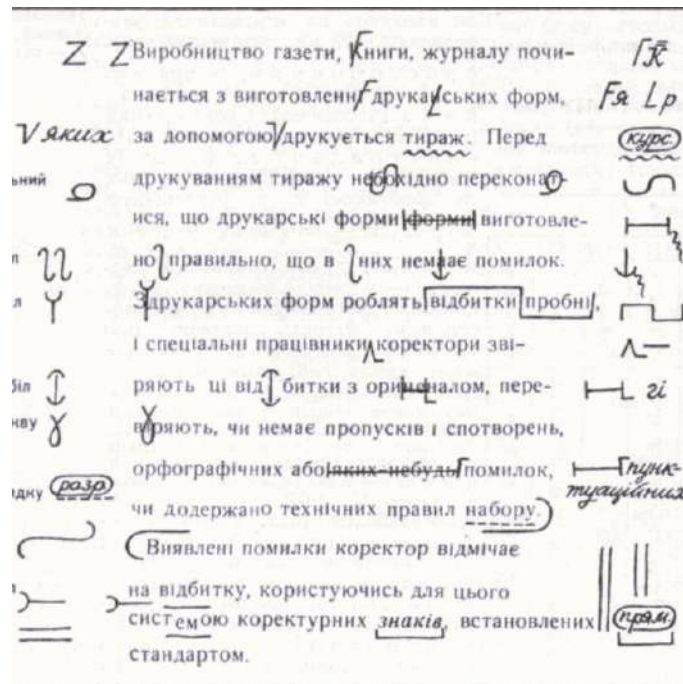 Виробництво газети, Книги, журналу почи– К
нається з виготовленн друкаських форм, я р
яких за допомогою друкується тираж. Перед курс.
ьний друкуванням тиражу необхідно переконат-
ися, що друкарські форми форми виготовле-
л но правильно, що в них немає помилок.
л Здрукарських форм роблять відбитки пробні,
і спеціальні працівники коректори зві–
біл ряють ці від битки з налом, пере- гі
кву ряють, чи немає пропусків і спотворень,
орфографічних або яких-небудь помилок, пунк-
дку розр. чи додержано технічних правил набору. туаційних
Виявлені помилки коректор відмічає
на відбитку, користуючись для цього
системою коректурних знаків, встановлених прям.
стандартом.